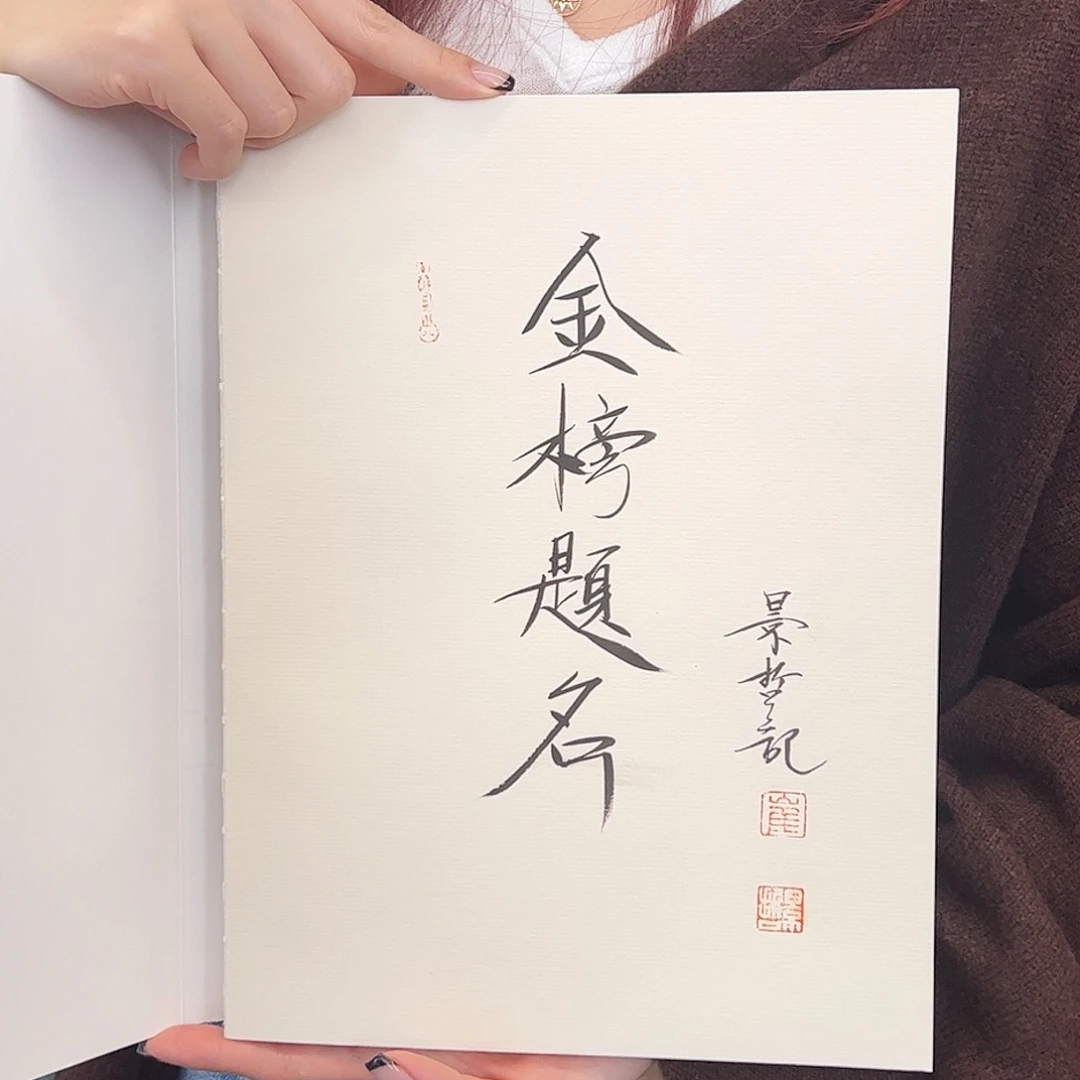 金榜題名
景哲記